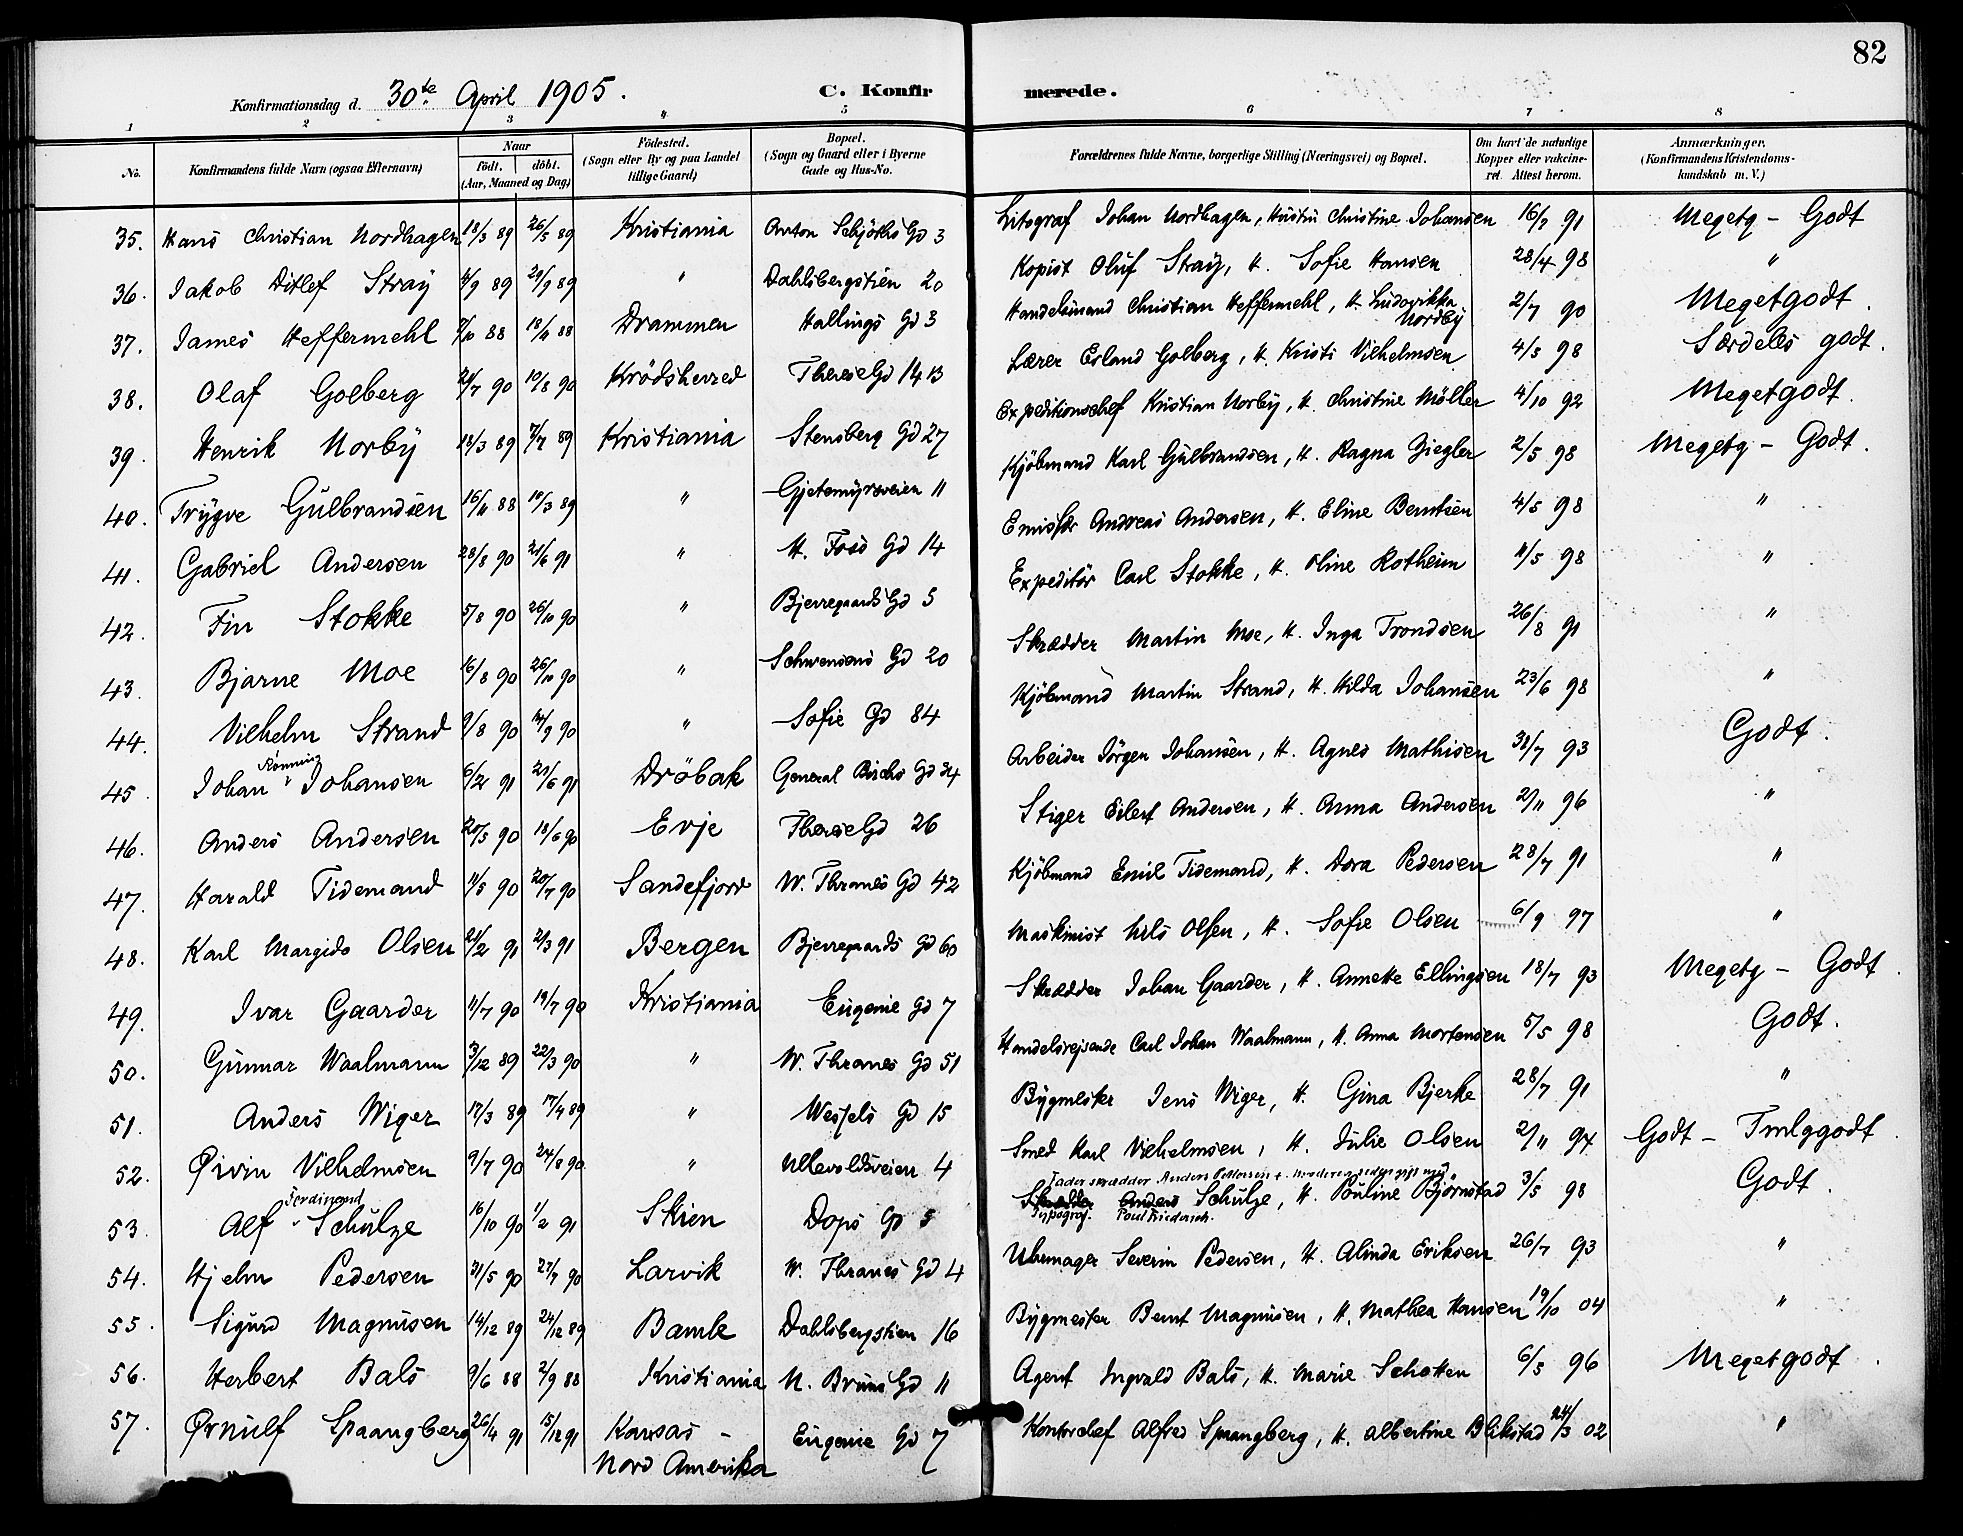 82
Konfirmationsdag d. 30te April 1905.
C. Konfirmerede.
1 2 3 4 5 6 7 8
No. | Konfirmandens fulde Navn (ogsaa Efternavn) | Naar født. döbt. (Aar, Maaned og Dag) | Födested. (Sogn eller By og paa Landet tillige Gaard) | Bopæl. (Sogn og Gaard eller i Byerne Gade og Hus-No. | Forældrenes fulde Navne, borgerlige Stilling (Næringsvei) og Bopæl. | Om havt de naturlige Kopper eller vakcineret. Attest herom. | Anmærkninger. (Konfirmandens Kristendomskundskab m. V.)
35. Hans Christian Nordhagen 18/3 89 26/5 89 Kristiania Anton Schjöths Gd 3 Litograf Johan Nordhagen, Hustru Christine Johansen 16/7 91 Megetg - Godt
36. Jakob Ditlef Stray 4/9 89 29/9 89 " Dahlsbergstien 20 Kopist Oluf Stray, H. Sofie Hansen 28/4 98 "
37. James Heffermehl 7/10 88 18/11 88 Drammen Hallings Gd 3 Handelsmand Christian Heffermehl, H. Ludovikka Nordby 2/7 90 Megetgodt
38. Olaf Golberg 21/7 90 10/8 90 Krödsherred Therese Gd 14 B Lærer Erland Golberg, H. Kristi Vilhelmsen 4/5 98 Særdeles godt.
39. Henrik Norby 18/3 89 7/7 89 Kristiania Stensberg Gd 27 Expeditionschef Kristian Norby, H. Christine Möller 4/10 92 Megetgodt.
40. Trygve Gulbrandsen 16/11 88 10/3 89 " Gjetemyrsveien 11 Kjöbmand Karl Gulbrandsen, H. Ragna Ziegler 2/5 98 Megetg - Godt.
41. Gabriel Andersen 28/8 90 21/6 91 " H. Foss Gd 14 Emissær Andreas Andersen, H. Eline Berntsen 4/5 98 "
42. Fin Stokke 5/8 90 26/10 90 " Bjerregaards Gd 5 Expeditör Carl Stokke, H. Oline Rotheim 11/5 98 "
43. Bjarne Moe 16/8 90 26/10 90 " Schwensens Gd 20 Skrædder Martin Moe, H. Inga Trondsen 26/8 91 "
44. Vilhelm Strand 9/8 90 14/9 90 " Sofie Gd 84 Kjöbmand Martin Strand, H. Hilda Johansen 23/6 98 "
45. Johan Rønning Johansen 6/2 91 21/6 91 Dröbak General Birchs Gd 34 Arbeider Jörgen Johansen, H. Agnes Mathisen 31/7 93 Godt.
46. Anders Andersen 20/5 90 18/6 90 Evje Therese Gd 26 Stiger Eilert Andersen, H. Anna Andersen 2/11 96 "
47. Harald Tidemand 11/5 90 20/7 90 Sandefjord W. Thranes Gd 42 Kjöbmand Emil Tidemand, H. Dora Pedersen 28/7 91 "
48. Karl Margido Olsen 21/2 91 2/3 91 Bergen Bjerregaards Gd 60 Maskinist Nils Olsen, H. Sofie Olsen 6/9 97 "
49. Ivar Gaarder 11/7 90 19/7 90 Kristiania Eugenie Gd 7 Skrædder Johan Gaarder, H. Annette Ellingsen 18/7 93 Megetg - Godt.
50. Gunnar Waalmann 3/12 89 22/3 90 " W. Thranes Gd 51 Handelsrejsende Carl Johan Waalmann, H. Anna Mortensen 5/5 98 Godt.
51. Anders Wiger 17/3 89 17/4 89 " Wessels Gd 15 Bygmester Jens Wiger, H. Gina Bjerke 28/7 91 "
52. Øivin Vilhelmsen 9/7 90 24/8 90 " Ullevoldsveien 4 Smed Karl Vilhelmsen, H. Julie Olsen 2/11 94 Godt - Tmlggodt.
53. Alf Ferdinand Schulze 16/10 90 1/2 91 Skien Dops Gd 5 Fader skrædder Anders Pettersen + moderen siden gift med Skrædder Anders Typograf. Poul Friederich. Schulze, H. Pouline Björnstad 3/5 98 Godt.
54. Hjelm Pedersen 31/5 90 27/7 90 Larvik W. Thranes Gd 4 Uhrmager Severin Pedersen, H. Alinda Eriksen 26/7 93 "
55. Sigurd Magnusen 14/12 89 24/12 89 Bamle Dahlsbergstien 16 Bygmester Bernt Magnusen, H. Mathea Hansen 19/10 04 "
56. Herbert Bals 9/6 88 2/9 88 Kristiania N. Bruns Gd 11 Agent Ingvald Bals, H. Marie Schotten 6/5 96 Megetgodt.
57. Ørnulf Spaangberg 26/4 91 15/12 91 Kansas - Nord Amerika Eugenie Gd 7 Kontorchef Alfred Spaangberg, H. Albertine Blikstad 24/3 02 "